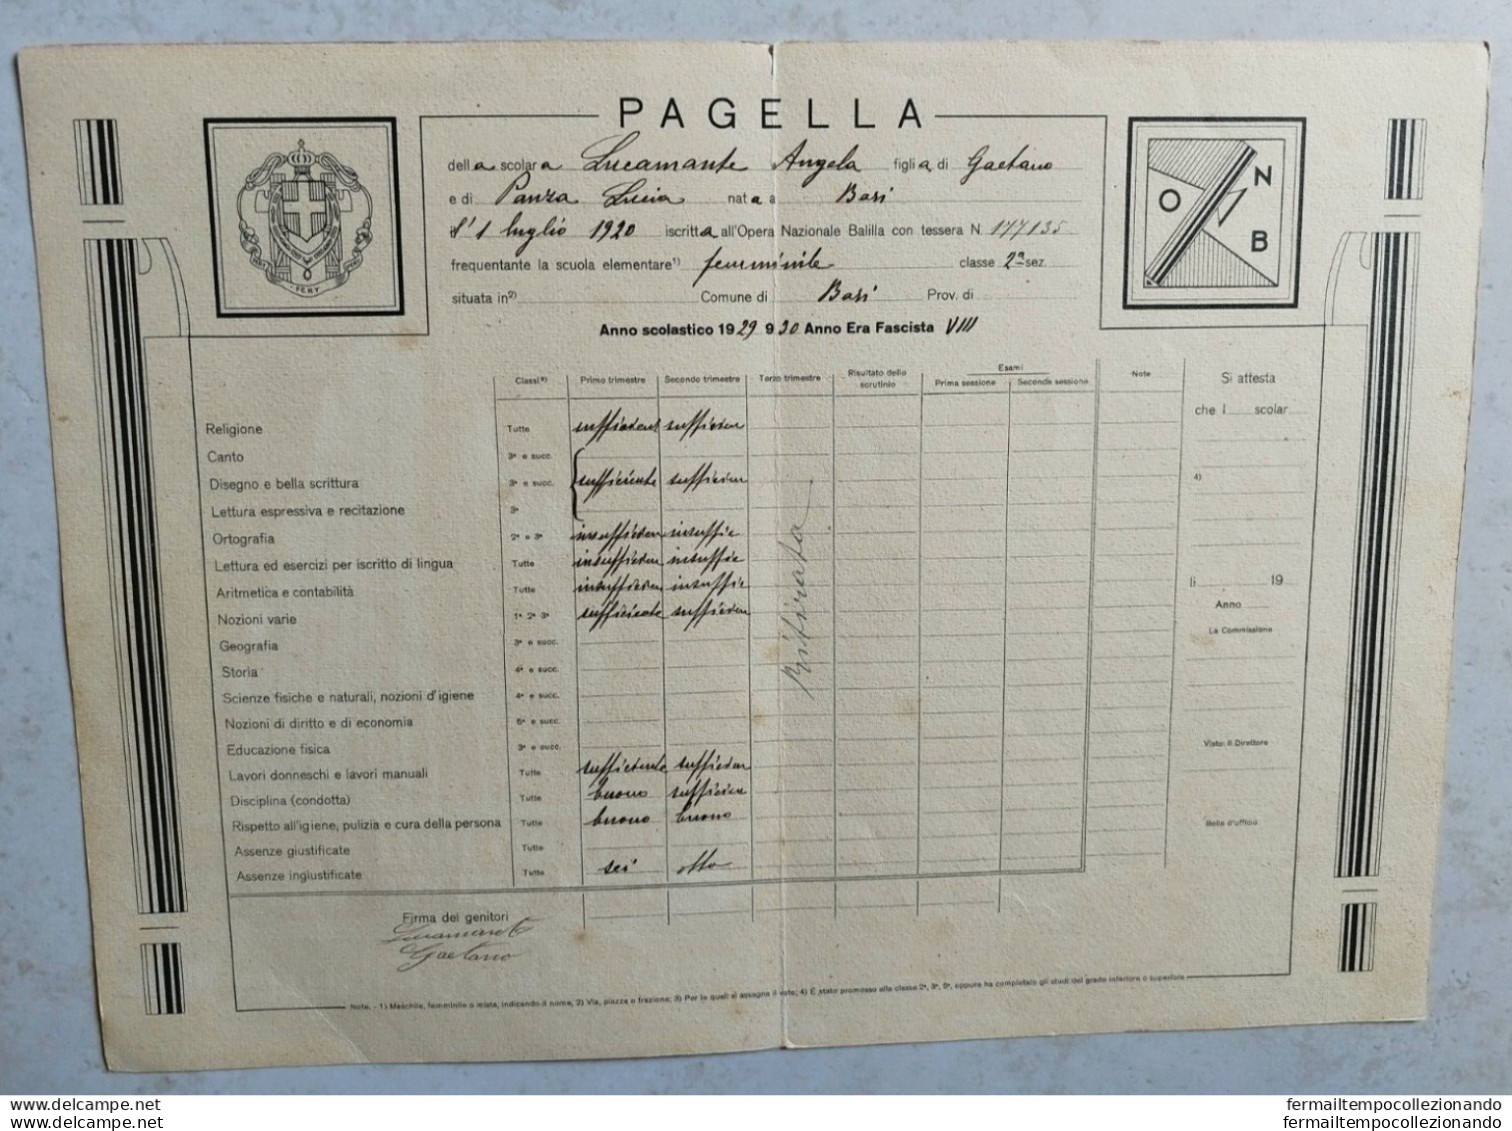 PAGELLA
della scolara Lucamante Angela figlia di Gaetano
e di Panza Lucia nata a Bari
il 1 luglio 1920 iscritta all'Opera Nazionale Balilla con tessera N. 177135
frequentante la scuola elementare 1) femminile classe 2ª sez.
situata in 2) Comune di Bari Prov. di
Anno scolastico 1929 930 Anno Era Fascista VIII
FERT
O N B
Classi 3) Primo trimestre Secondo trimestre Terzo trimestre Risultato dello scrutinio Esami Prima sessione Seconda sessione Note
Religione Tutte sufficiente sufficien
Canto 3ª e succ.
Disegno e bella scrittura 3ª e succ. sufficiente sufficien
Lettura espressiva e recitazione 3ª
Ortografia 2ª e 3ª insufficien insuffic
Lettura ed esercizi per iscritto di lingua Tutte insufficien insuffic
Aritmetica e contabilità Tutte insufficien insuffic
Nozioni varie 1ª 2ª 3ª sufficiente sufficien
Geografia 3ª e succ.
Storia 4ª e succ.
Scienze fisiche e naturali, nozioni d'igiene 4ª e succ.
Nozioni di diritto e di economia 5ª e succ.
Educazione fisica 3ª e succ.
Lavori donneschi e lavori manuali Tutte sufficiente sufficien
Disciplina (condotta) Tutte buono sufficien
Rispetto all'igiene, pulizia e cura della persona Tutte buono buono
Assenze giustificate Tutte
Assenze ingiustificate Tutte sei otto
Ritirata
Si attesta
che l scolar
4)
lì 19
Anno
La Commissione
Visto: Il Direttore
Bollo d'ufficio
Firma dei genitori
Lucamante
Gaetano
Note. - 1) Maschile, femminile o mista, indicando il nome; 2) Via, piazza o frazione; 3) Per le quali si assegna il voto; 4) È stato promosso alla classe 2ª, 3ª, 5ª, oppure ha completato gli studi del grado inferiore o superiore
fermailtempocollezionando
fermailtempocollezionando
www.delcampe.net
www.delcampe.net